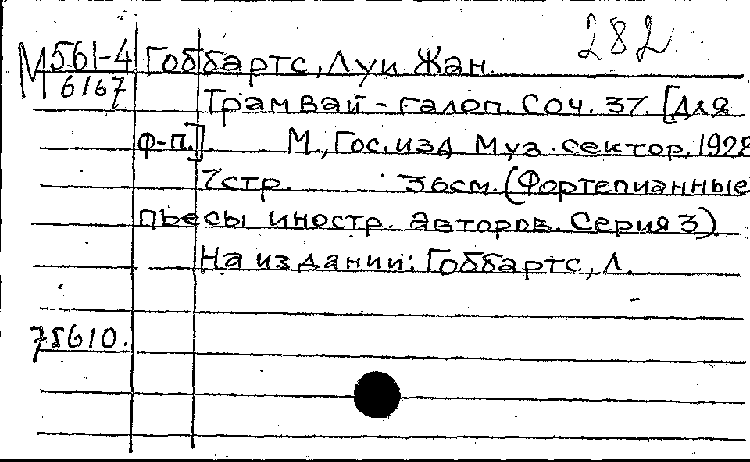 282
М 561-4 Гоббартс, Луи Жан.
6167
Трамвай-галоп. Соч. 37. [Для
ф-п.]. М., Гос. изд. Муз. сектор, 1928
7 стр. 36 см. (Фортепианные
пьесы иностр. авторов. Серия 3)
На издании: Гоббартс, Л.
78610.